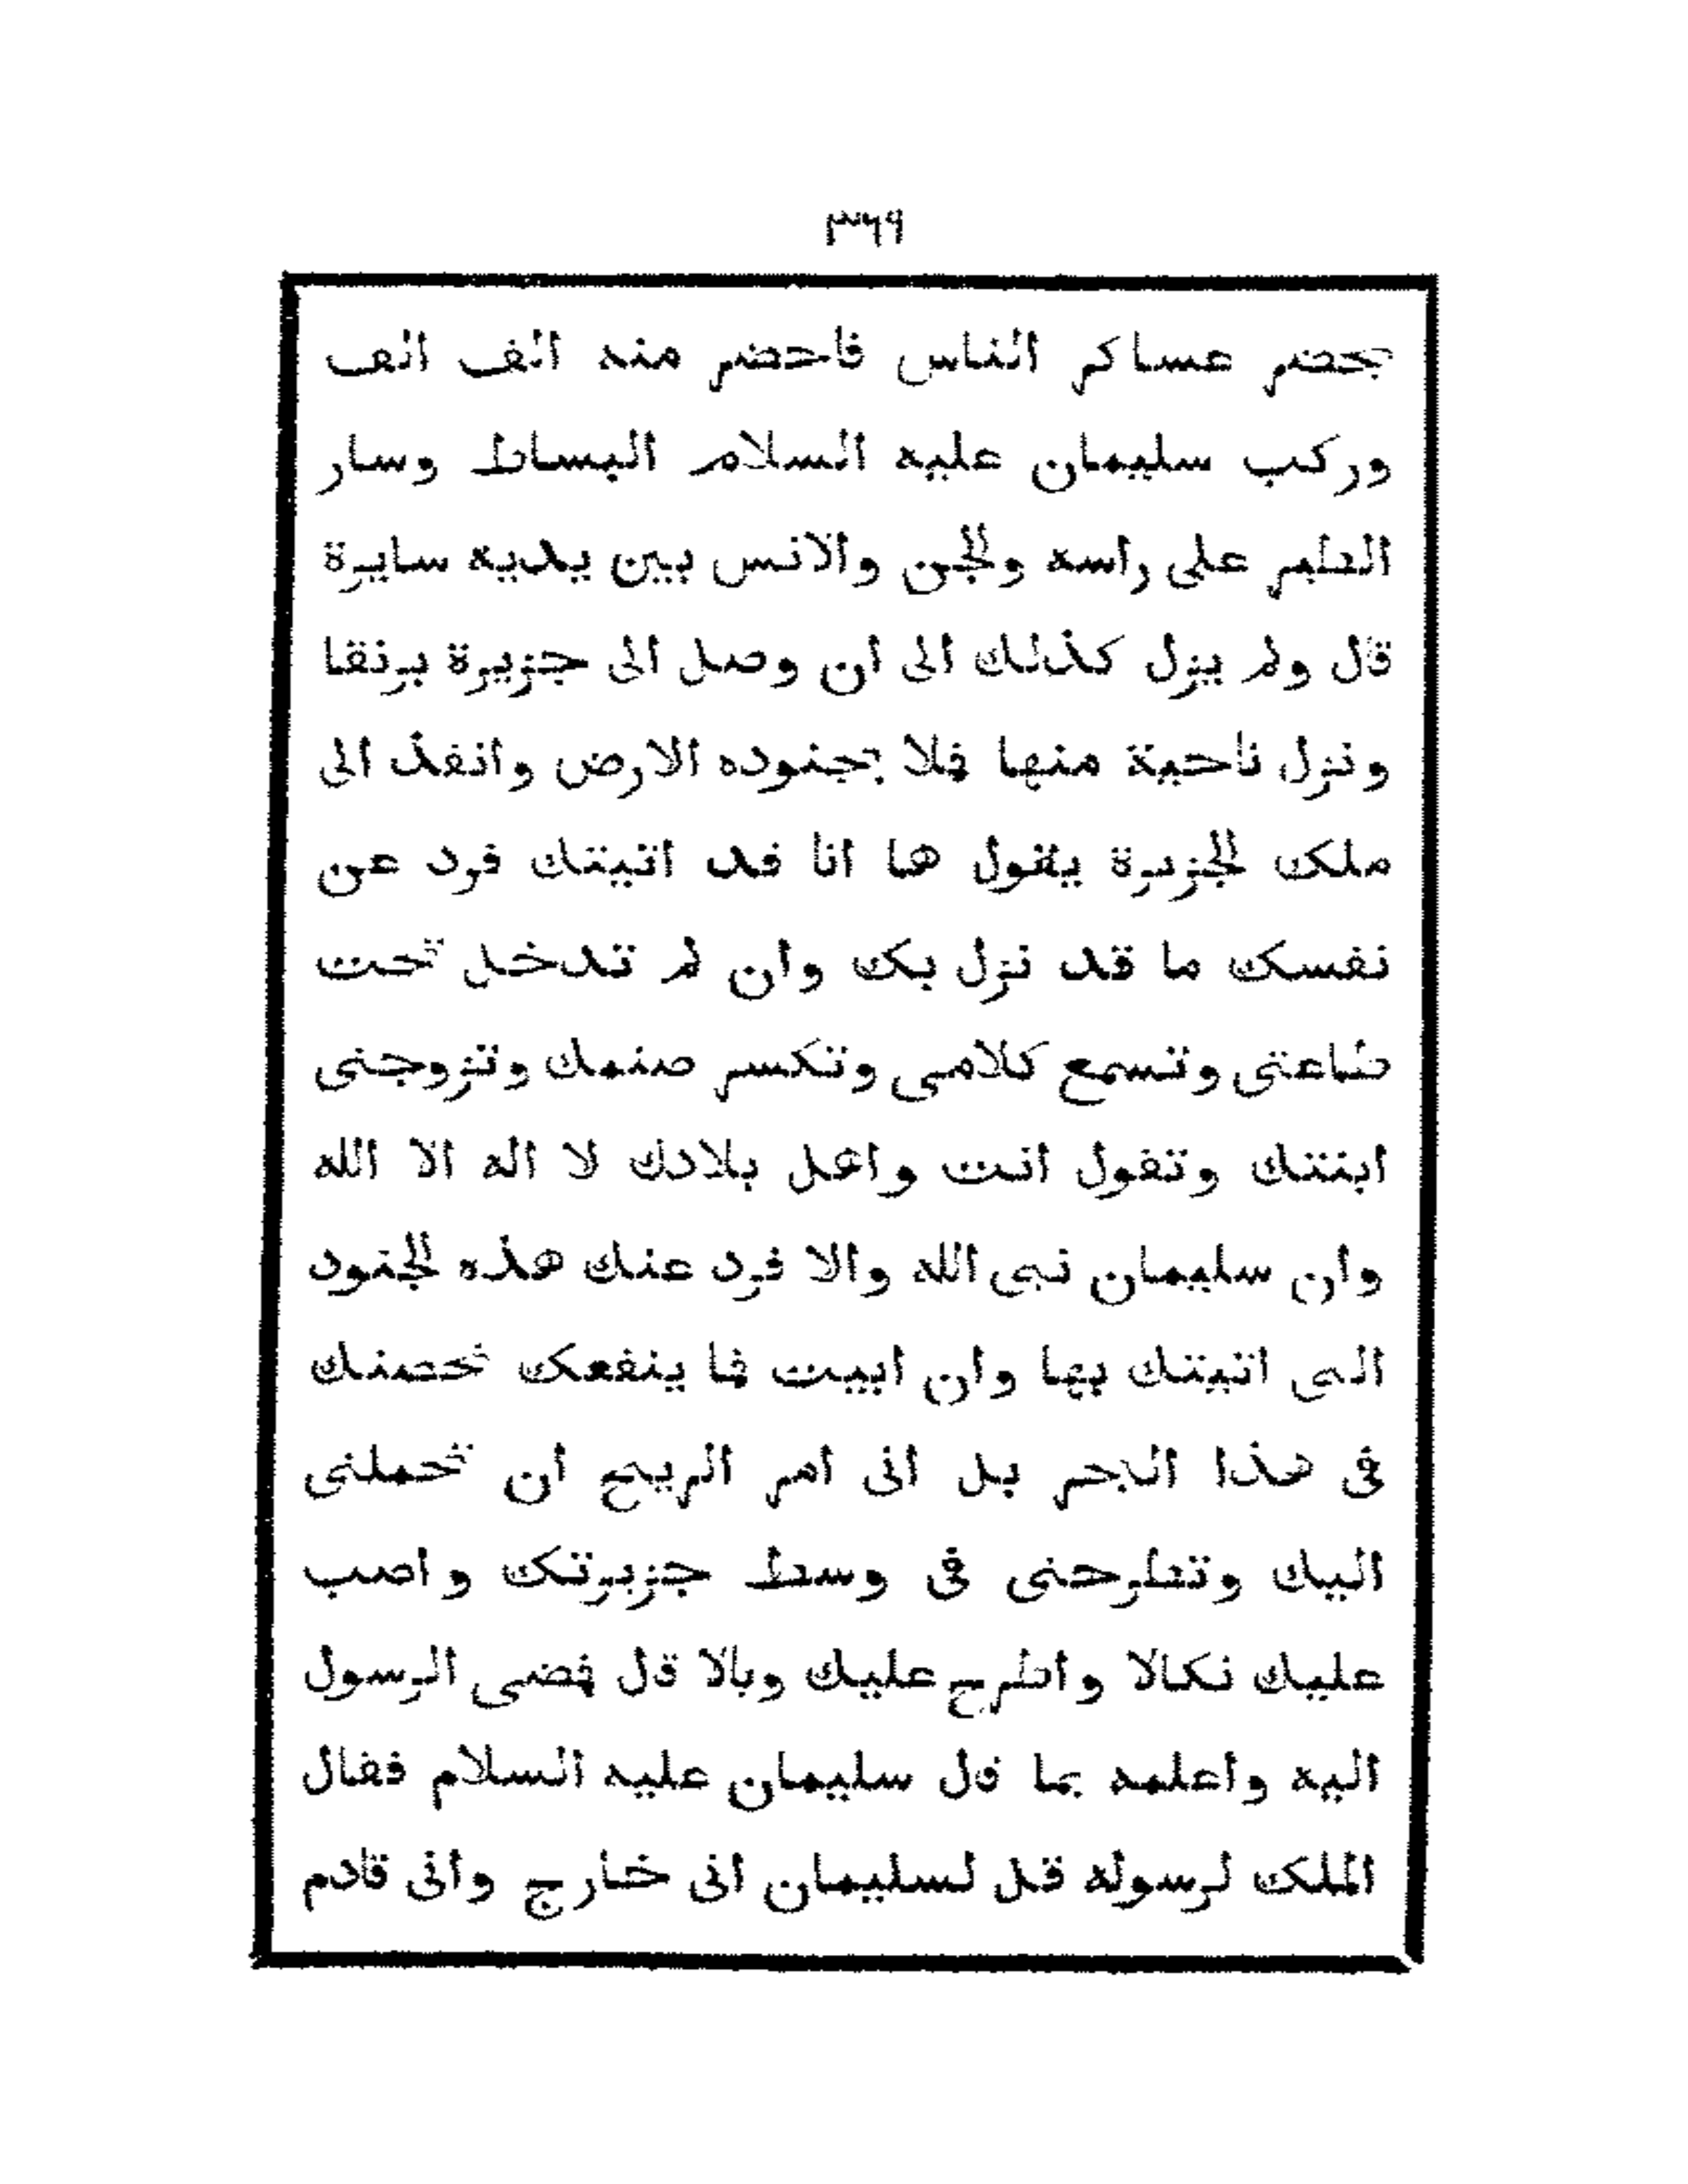 ٣٦٩
يحضر عساكر الناس فاحضر منه الف الف
وركب سليمان عليه السلام البساط وسار
الطير على راسه والجن والانس بين يديه سايرة
قال ولم يزل كذلك الى ان وصل الى جزيرة برنقا
ونزل ناحية منها فملا بجنوده الارض وانفذ الى
ملك الجزيرة يقول ها انا قد اتيتك فرد عن
نفسك ما قد نزل بك وان لم تدخل تحت
طاعتى وتسمع كلامى وتكسر صنمك وتزوجنى
ابنتك وتقول انت واهل بلادك لا اله الا الله
وان سليمان نبى الله والا فرد عنك هذه الجنود
التى اتيتك بها وان ابيت فما ينفعك تحصنك
فى هذا البحر بل انى امر الريح ان تحملنى
اليك وتطرحنى فى وسط جزيرتك واصب
عليك نكالا واطرح عليك وبالا قال فمضى الرسول
اليه واعلمه بما قال سليمان عليه السلام فقال
الملك لرسوله قل لسليمان انى خارج وانى قادم